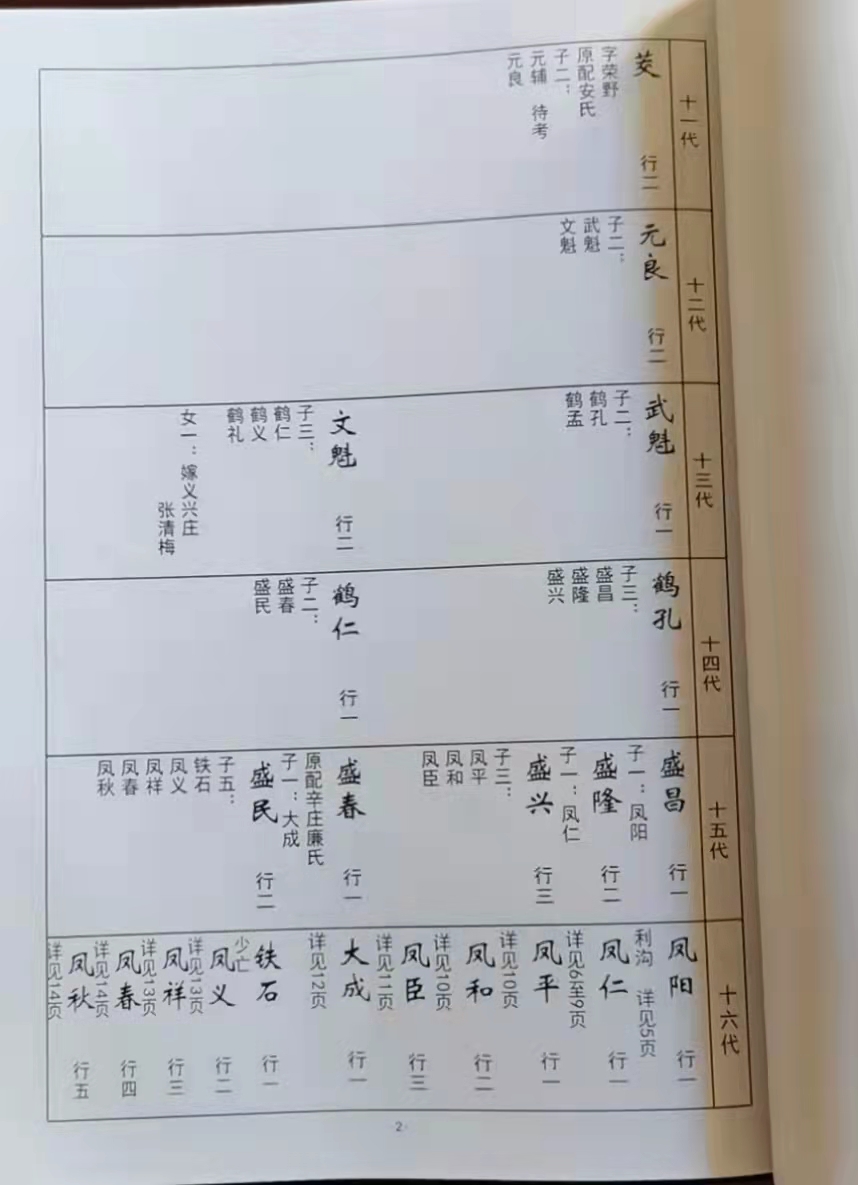 十一代
茭 行二
字荣野
原配安氏
子二：
元辅 待考
元良
十二代
元良 行二
子二：
武魁
文魁
十三代
武魁 行一
子二：
鹤孔
鹤孟
文魁 行二
子三：
鹤仁
鹤义
鹤礼
女一：嫁义兴庄
张清梅
十四代
鹤孔 行一
子三：
盛昌
盛隆
盛兴
鹤仁 行一
子二：
盛春
盛民
十五代
盛昌 行一
子一：凤阳
盛隆 行二
子一：凤仁
盛兴 行三
子三：
凤平
凤和
凤臣
盛春 行一
原配辛庄廉氏
子一：大成
盛民 行二
子五：
铁石
凤义
凤祥
凤春
凤秋
十六代
凤阳 行一
利沟 详见5页
凤仁 行一
详见6至9页
凤平 行一
详见10页
凤和 行二
详见10页
凤臣 行三
详见11页
大成 行一
详见12页
铁石 行一
少亡
凤义 行二
详见13页
凤祥 行三
详见13页
凤春 行四
详见14页
凤秋 行五
详见14页
2